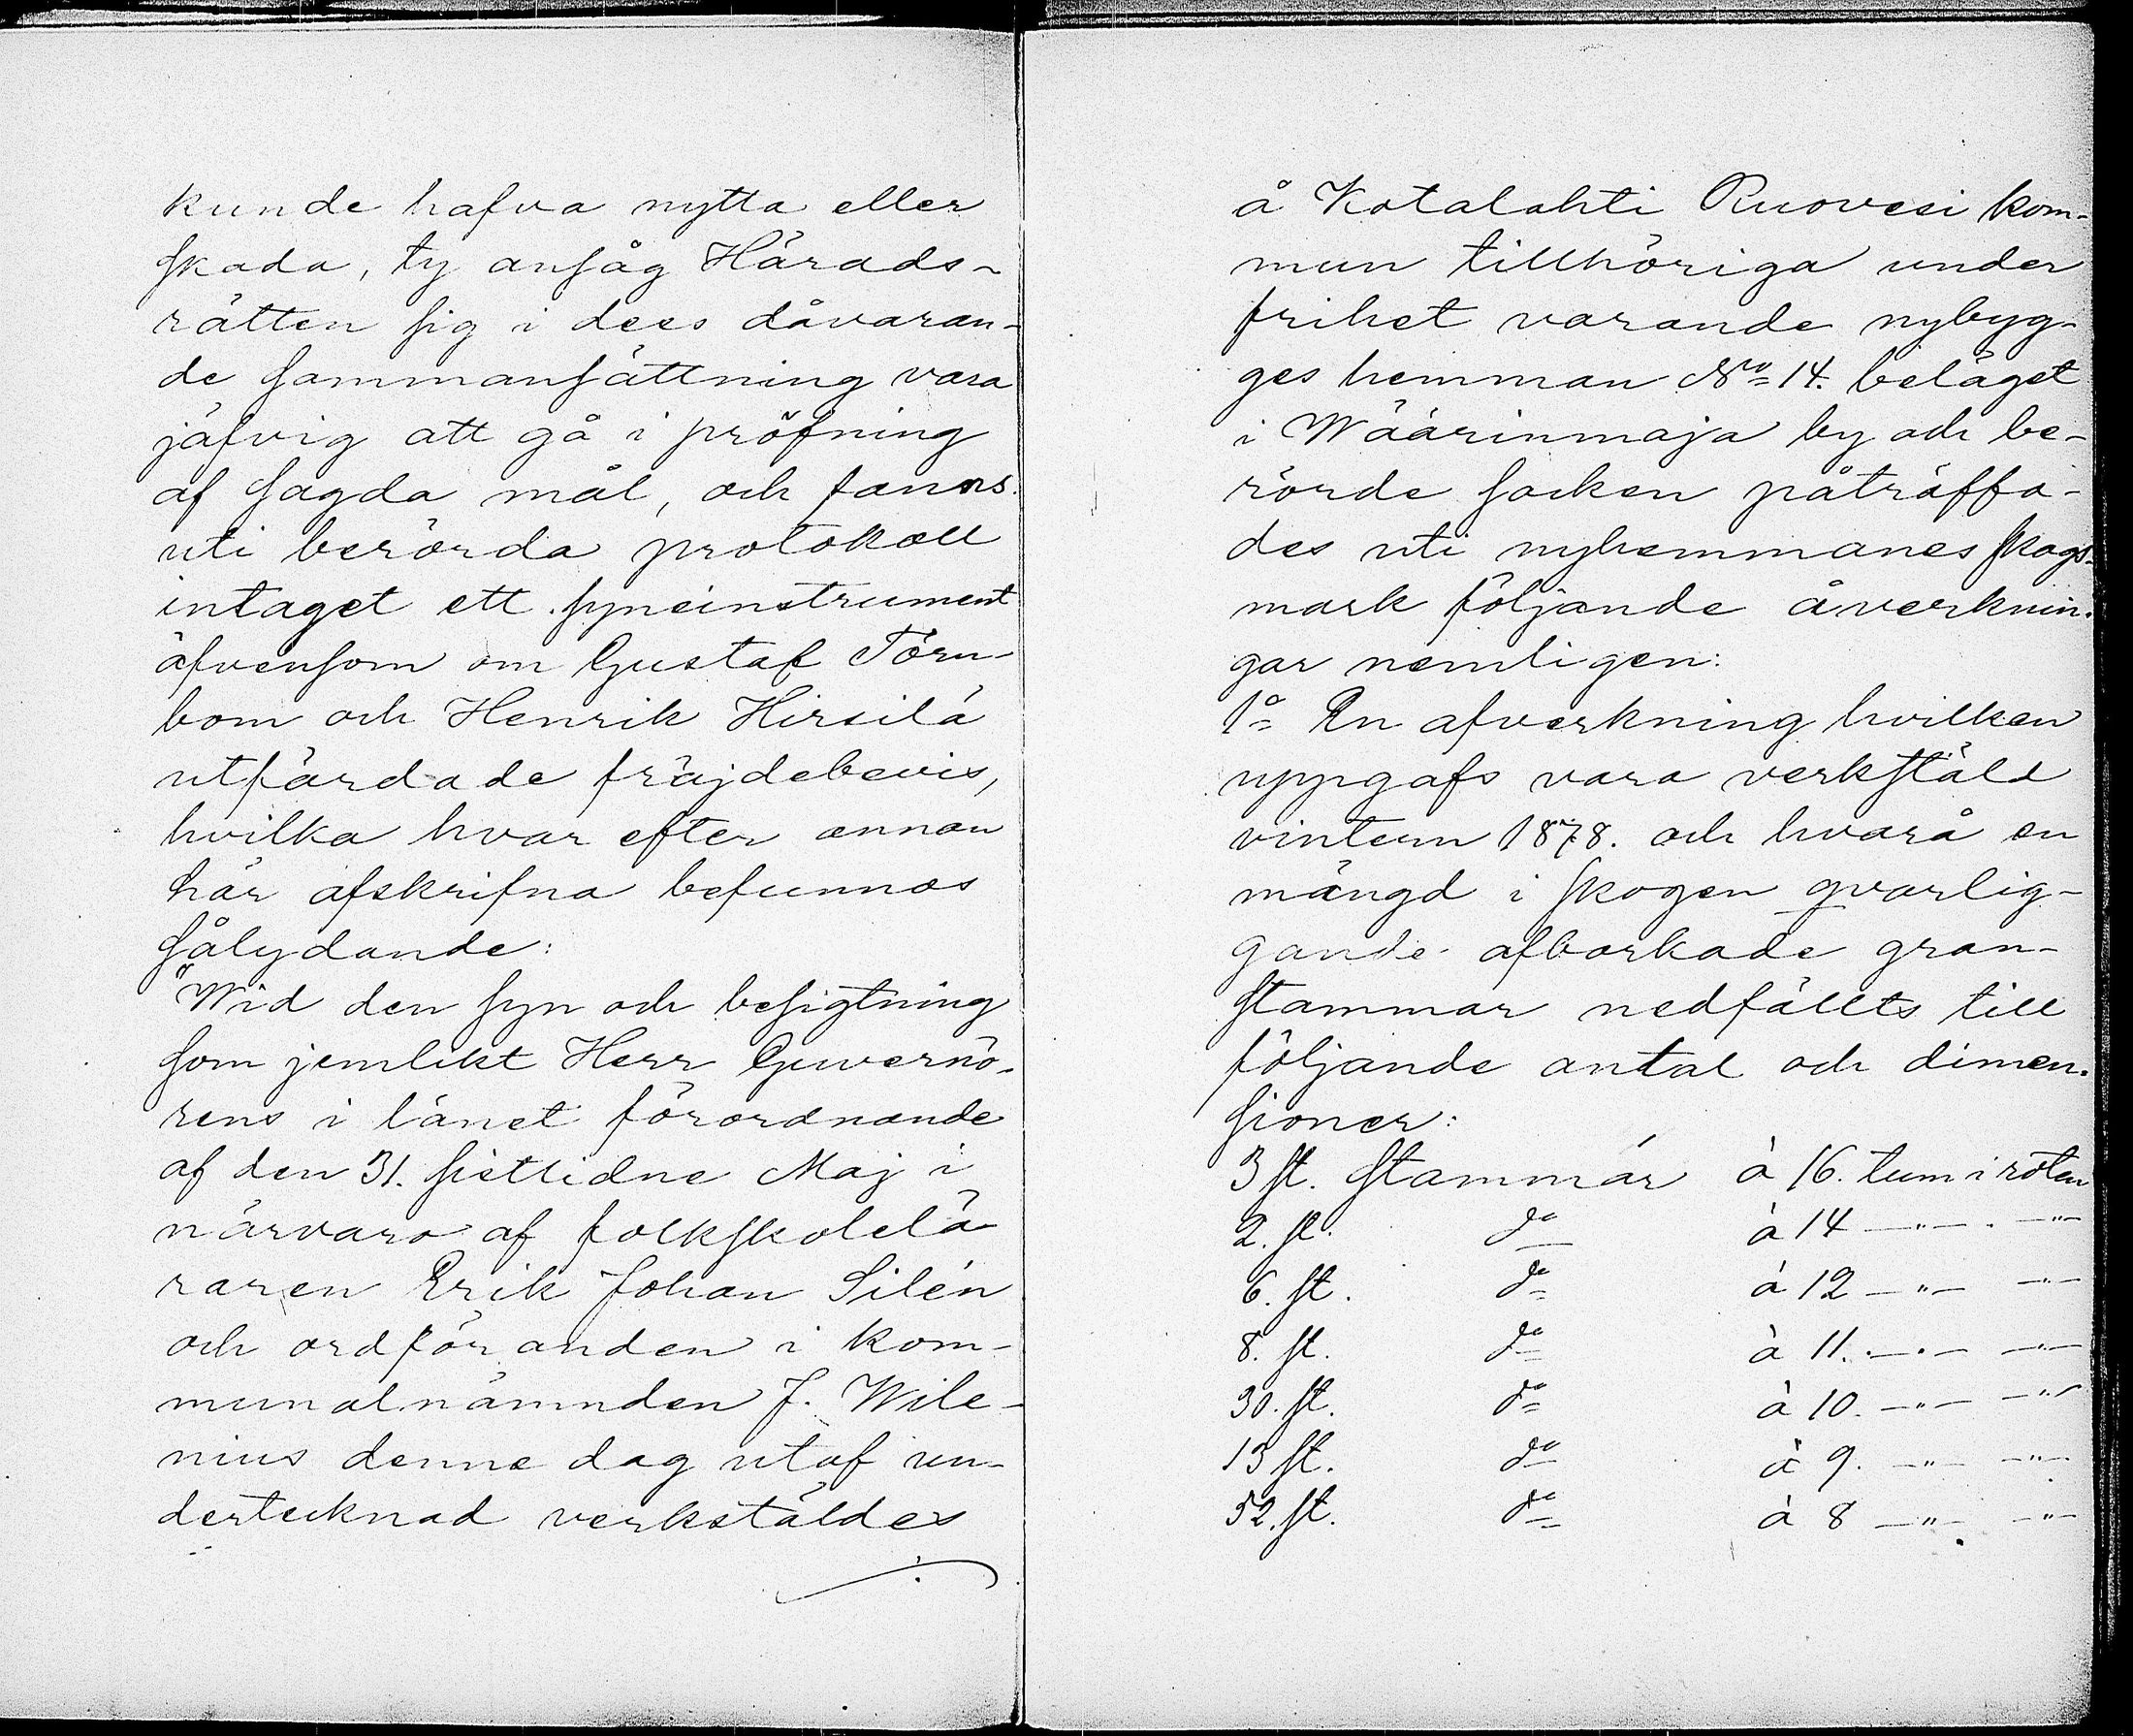 kunde hafva nytta eller
skada, ty ansåg Härads-
rätten sig i dess dåvaran-
de sammansättning vara
jäfvig att gå i pröfning
af sagda mål, och fanns
uti berörda protokoll
intaget ett syneinstrument
äfvensom om Gustaf Törn-
bom och Henrik Hirsilä
utfärdade fräjdebevis,
hvilka hvar efter annan
här afskrifna befunnos
sålydande:
"Wid den syn och besigtning
som jemlikt Herr Guvernö-
rens i länet förordnande
af den 31. sistlidne Maj i
närvaro af folkskolelä
raren Erik Johan Silén
och ordföranden i kom-
munalnämnden J. Wile-
nius denne dag utaf un-
dertecknad verkstäldes
å Kotalahti Ruovesi kom-
mun tillhöriga under
frihet varande nybyg-
ges hemman No 14. beläget
i Wäärinmaja by och be-
rörde socken påträffa-
des uti nyhemmanes skogs-
mark följande åverknin-
gar nemligen:
1o En afverkning hvilken
uppgafs vara verkstäld
vintern 1878. och hvarå en
mängd i skogen qvarlig-
gande afborkade gran-
stammar nedfällts till
följande antal och dimen-
sioner:
3 st. stammar à 16. tum i roten
2. st. do à 14 —"— . —"—
6. st. do à 12 —"— —"—
8. st. do à 11. —"— —"—
30. st. do à 10. —"— —"—
13 st. do à 9. —"— —"—
52. st. do à 8 —"— —"—